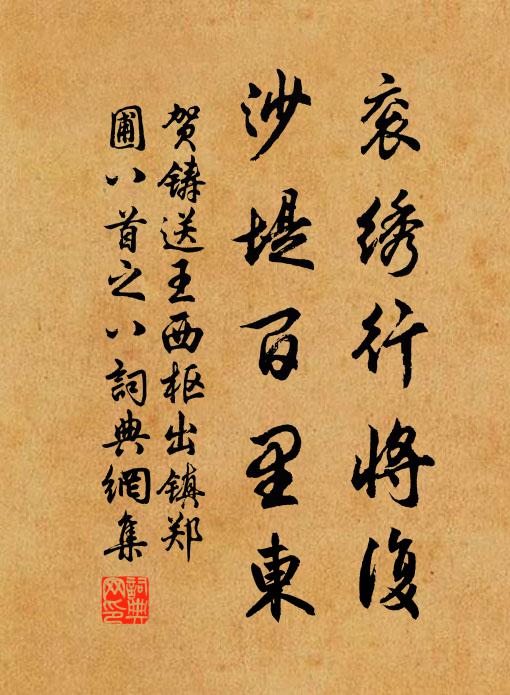 衮绣行将復
沙堤百里東
贺铸送王西枢出镇郑
圃八首之八詞典網集
詞典網印